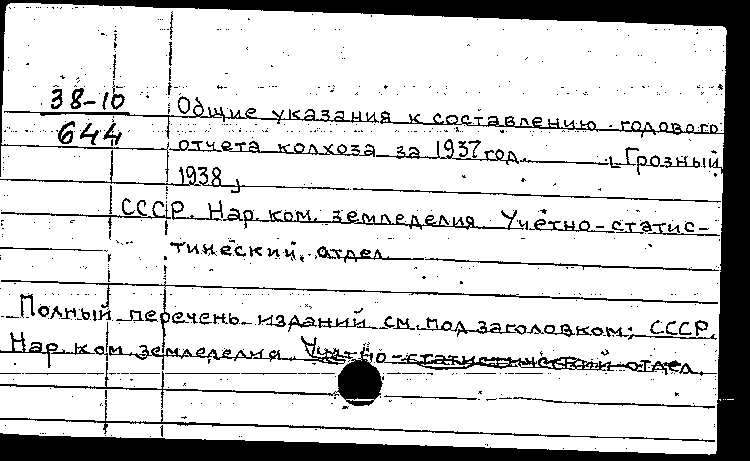 38-10
644
Общие указания к составлению годового
отчета колхоза за 1937 год. [Грозный
1938]
СССР. Нар. ком. земледелия. Учётно-статис-
тический отдел
Полный перечень изданий см. под заголовком: СССР.
Нар. ком. земледелия. Учётно-статистический отдел.